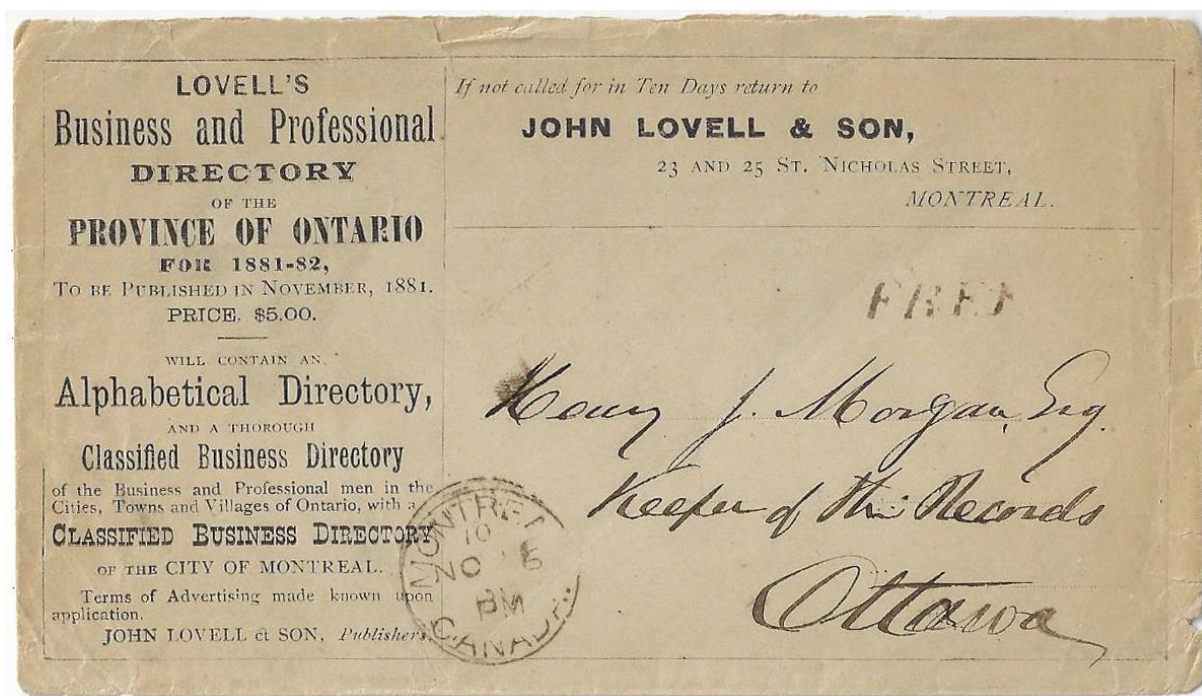 LOVELL'S
Business and Professional
DIRECTORY
OF THE
PROVINCE OF ONTARIO
FOR 1881-82,
TO BE PUBLISHED IN NOVEMBER, 1881.
PRICE, $5.00.
WILL CONTAIN AN
Alphabetical Directory,
AND A THOROUGH
Classified Business Directory
of the Business and Professional men in the
Cities, Towns and Villages of Ontario, with a
CLASSIFIED BUSINESS DIRECTORY
OF THE CITY OF MONTREAL.
Terms of Advertising made known upon
application.
JOHN LOVELL et SON, Publishers.
If not called for in Ten Days return to
JOHN LOVELL & SON,
23 AND 25 ST. NICHOLAS STREET,
MONTREAL.
FREE
Henry J. Morgan, Esq.
Keeper of the Records
Ottawa
MONTREAL
10
NO 5
PM
CANADA